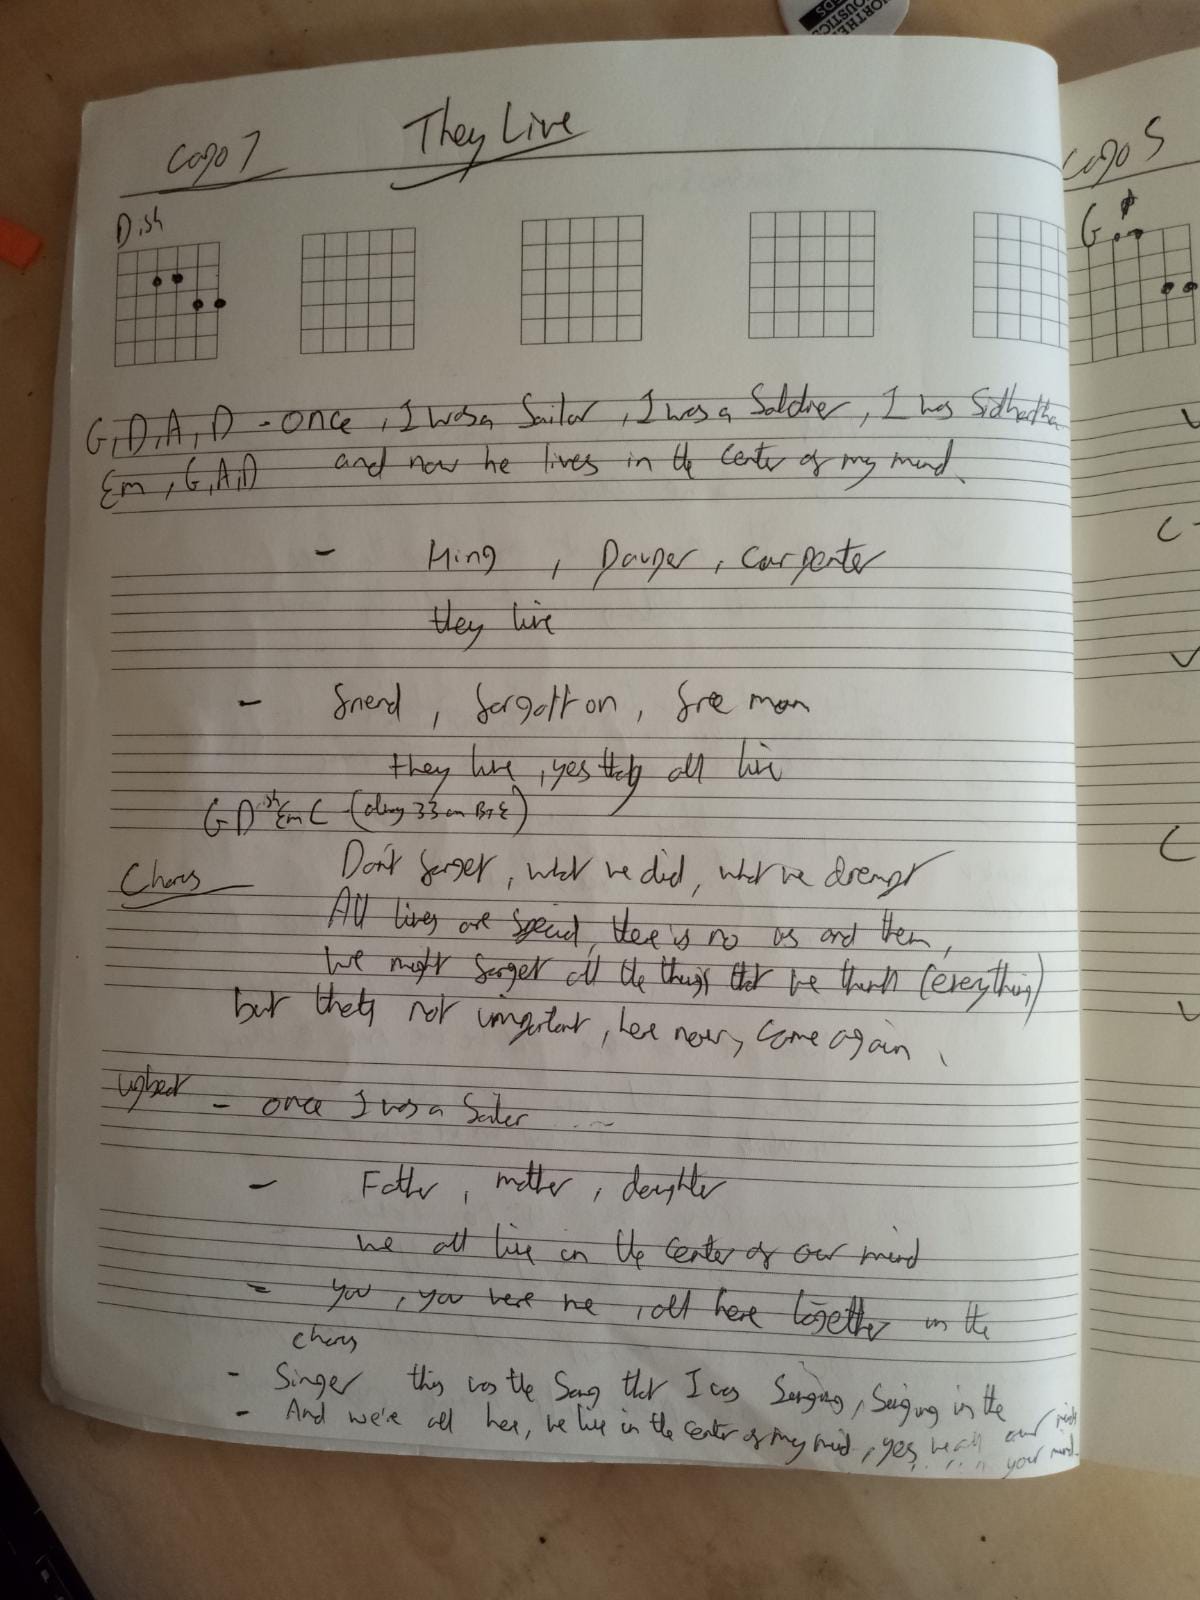 NORTHE
OUSTICS
EDS
Capo 7
They Live
Capo 5
Dish
G
G, D, A, D - once, I was a Sailor, I was a Soldier, I was Sidhartha
Em, G, A, D and now he lives in the center of my mind.
- King, Pauper, Carpenter
they live
- friend, forgotton, free man
they live, yes they all live
G D ish Em C (along 33 on B+E)
Chorus
Don't forget, what we did, what we dreampt
All lives are special, there's no us and them,
we might forget all the things that we think (everything)
but thats not important, here now, come again.
upbeat - once I was a Sailer ...
- Father, mother, daughter
we all live in the center of our mind
- you, you were me, all here together in the
chorus
- Singer this was the Song that I was Singing, Singing in the
- And we're all here, we live in the center of my mind, yes our minds
your mind